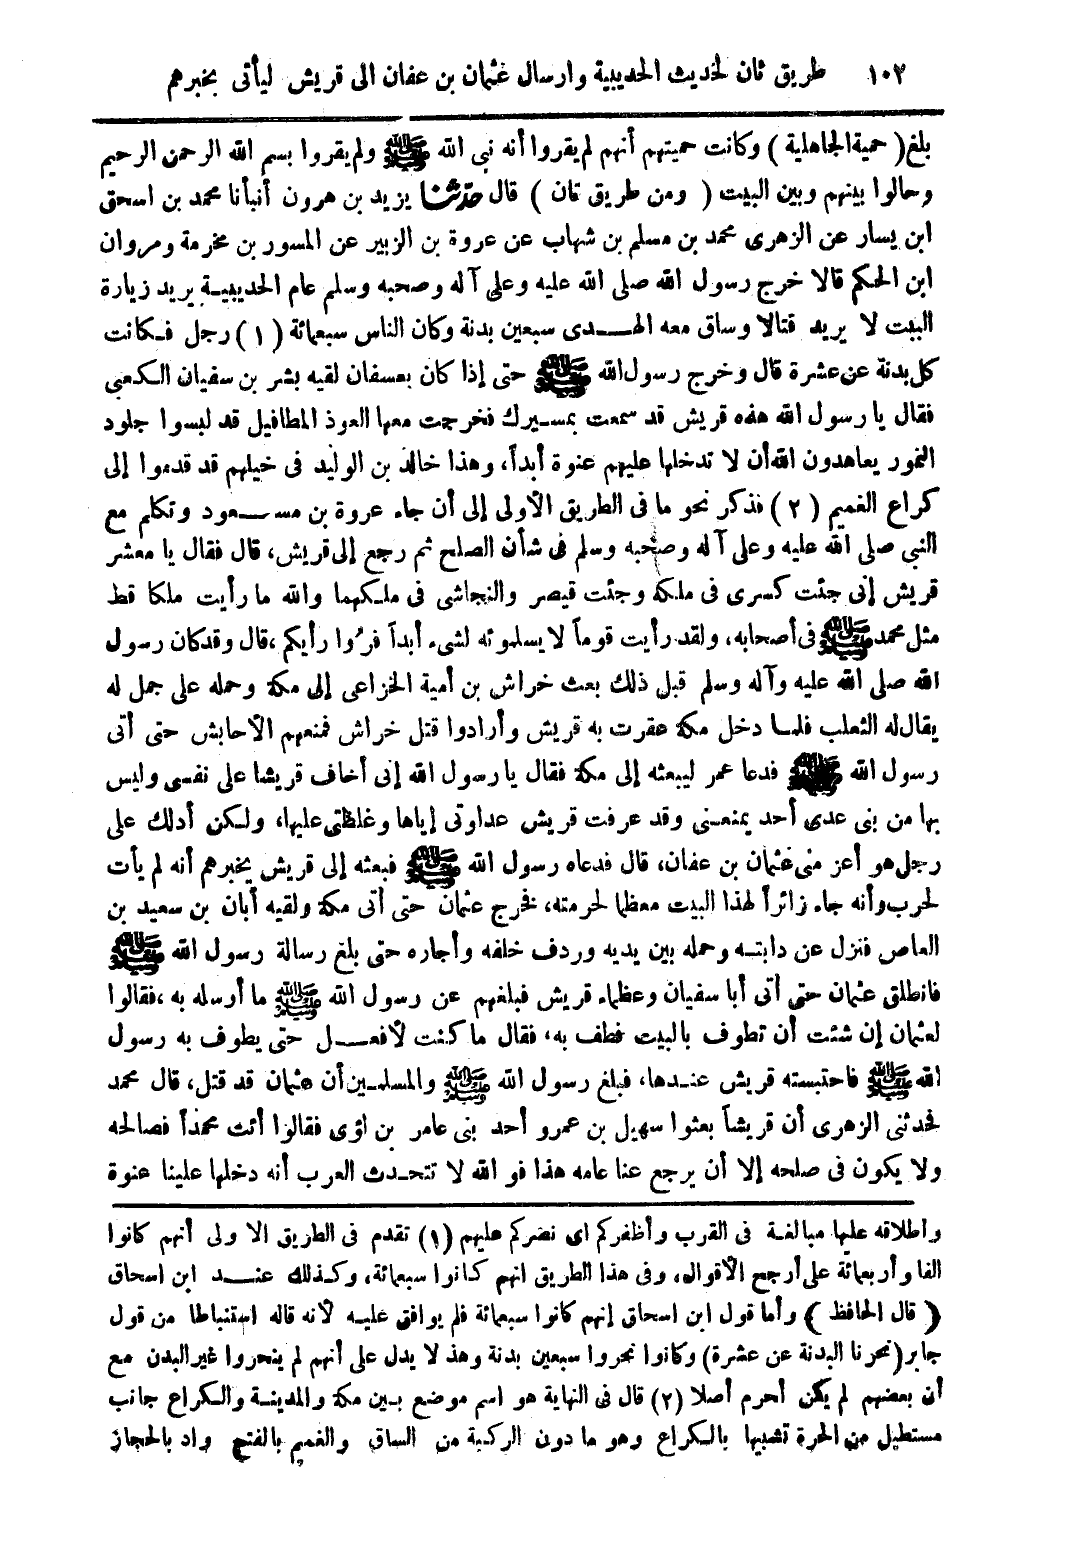 ١٠٢ طريق ثان لحديث الحديبية وارسال عثمان بن عفان الى قريش ليأتى بخبرهم
بلغ ( حمية الجاهلية ) وكانت حميتهم أنهم لم يقروا أنه نبى الله ﷺ ولم يقروا بسم الله الرحمن الرحيم
وحالوا بينهم وبين البيت ( ومن طريق ثان ) قال حدّثنا يزيد بن هرون أنبأنا محمد بن اسحق
ابن يسار عن الزهرى محمد بن مسلم بن شهاب عن عروة بن الزبير عن المسور بن مخرمة ومروان
ابن الحكم قالا خرج رسول الله صلى الله عليه وعلى آله وصحبه وسلم عام الحديبية يريد زيارة
البيت لا يريد قتالا وساق معه الهدى سبعين بدنة وكان الناس سبعمائة (١) رجل فكانت
كل بدنة عن عشرة قال وخرج رسول الله ﷺ حتى إذا كان بعسفان لقيه بشر بن سفيان الكعبى
فقال يا رسول الله هذه قريش قد سمعت بمسيرك فخرجت معها العوذ المطافيل قد لبسوا جلود
النمور يعاهدون الله أن لا تدخلها عليهم عنوة أبداً، وهذا خالد بن الوليد فى خيلهم قد قدموا إلى
كراع الغميم (٢) فذكر نحو ما فى الطريق الأولى إلى أن جاء عروة بن مسعود وتكلم مع
النبى صلى الله عليه وعلى آله وصحبه وسلم فى شأن الصلح ثم رجع إلى قريش، قال فقال يا معشر
قريش إنى جئت كسرى فى ملكه وجئت قيصر والنجاشى فى ملكهما والله ما رأيت ملكا قط
مثل محمد ﷺ فى أصحابه، ولقد رأيت قوماً لا يسلمونه لشىء أبداً فرُوا رأيكم، قال وقد كان رسول
الله صلى الله عليه وآله وسلم قبل ذلك بعث خراش بن أمية الخزاعى إلى مكة وحمله على جمل له
يقال له الثعلب فلما دخل مكة عقرت به قريش وأرادوا قتل خراش فمنعهم الأحابش حتى أتى
رسول الله ﷺ فدعا عمر ليبعثه إلى مكة فقال يا رسول الله إنى أخاف قريشا على نفسى وليس
بها من بنى عدى أحد يمنعنى وقد عرفت قريش عداوتى إياها وغلظتى عليها، ولكن أدلك على
رجل هو أعز منى عثمان بن عفان، قال فدعاه رسول الله ﷺ فبعثه إلى قريش يخبرهم أنه لم يأت
لحرب وأنه جاء زائراً لهذا البيت معظما لحرمته، فخرج عثمان حتى أتى مكة ولقيه أبان بن سعيد بن
العاص فنزل عن دابته وحمله بين يديه وردف خلفه وأجاره حتى بلغ رسالة رسول الله ﷺ
فانطلق عثمان حتى أتى أبا سفيان وعظماء قريش فبلغهم عن رسول الله ﷺ ما أرسله به، فقالوا
لعثمان إن شئت أن تطوف بالبيت فطف به، فقال ما كنت لأفعل حتى يطوف به رسول
الله ﷺ فاحتبسته قريش عندها، فبلغ رسول الله ﷺ والمسلمين أن عثمان قد قتل، قال محمد
فحدثنى الزهرى أن قريشاً بعثوا سهيل بن عمرو أحد بنى عامر بن لؤى فقالوا أئت محمداً فصالحه
ولا يكون فى صلحه إلا أن يرجع عنا عامه هذا فو الله لا تتحدث العرب أنه دخلها علينا عنوة
واطلاقه عليها مبالغة فى القرب وأظفركم اى نصركم عليهم (١) تقدم فى الطريق الاولى أنهم كانوا
الفا وأربعمائة على أرجع الأقوال، وفى هذا الطريق انهم كانوا سبعمائة، وكذلك عند ابن اسحاق
( قال الحافظ ) وأما قول ابن اسحاق إنهم كانوا سبعمائة فلم يوافق عليه لأنه قاله استنباطا من قول
جابر (نحرنا البدنة عن عشرة) وكانوا نحروا سبعين بدنة وهذ لا يدل على أنهم لم ينحروا غير البدن مع
أن بعضهم لم يكن أحرم أصلا (٢) قال فى النهاية هو اسم موضع بين مكة والمدينة والكراع جانب
مستطيل من الحرة تشبيها بالكراع وهو ما دون الركبة من الساق والغميم بالفتح واد بالحجاز